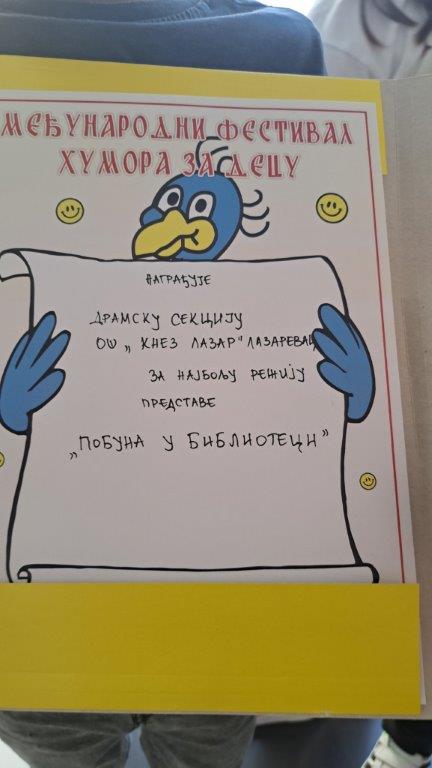 МЕЂУНАРОДНИ ФЕСТИВАЛ
ХУМОРА ЗА ДЕЦУ
НАГРАЂУЈЕ
ДРАМСКУ СЕКЦИЈУ
ОШ „КНЕЗ ЛАЗАР" ЛАЗАРЕВАЦ
ЗА НАЈБОЉУ РЕЖИЈУ
ПРЕДСТАВЕ
„ПОБУНА У БИБЛИОТЕЦИ"